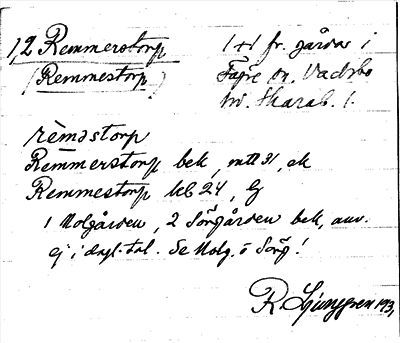 1,2 Remmerstorp
(Remmestorp)
1+1 fr. gårdar i
Fägre sn. Vadsbo
hd. Skarab. l.
rèmastorp
Remmerstorp bek, mtl 31, ek
Remmestorp kb 24, Lj
1 Nolgården, 2 Sörgården bek, anv.
ej i dagl. tal. Se Nolg. o Sörg!
R Ljunggren 1931